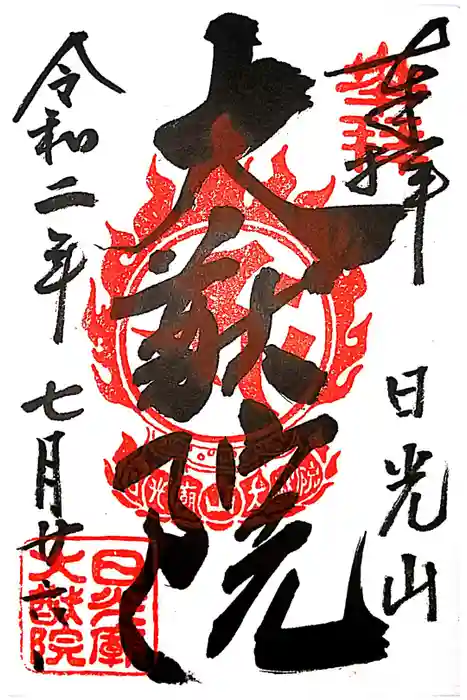 奉拝
日光山
大猷院
令和二年
七月廿六
日光廟
大猷院